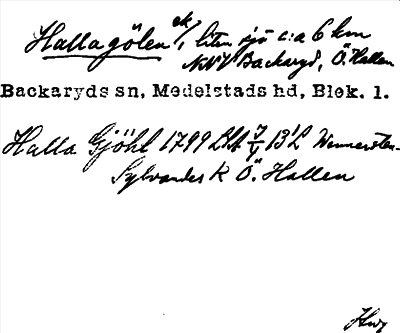 Hallagölen ek/, liten sjö c:a 6 km
NNV Backaryd, Ö. Hallen
Backaryds sn, Medelstads hd, Blek. l.
Halla Gjöhl 1799 Lht 7/V 13 L Wennersten-
Sylvanders K Ö. Hallen